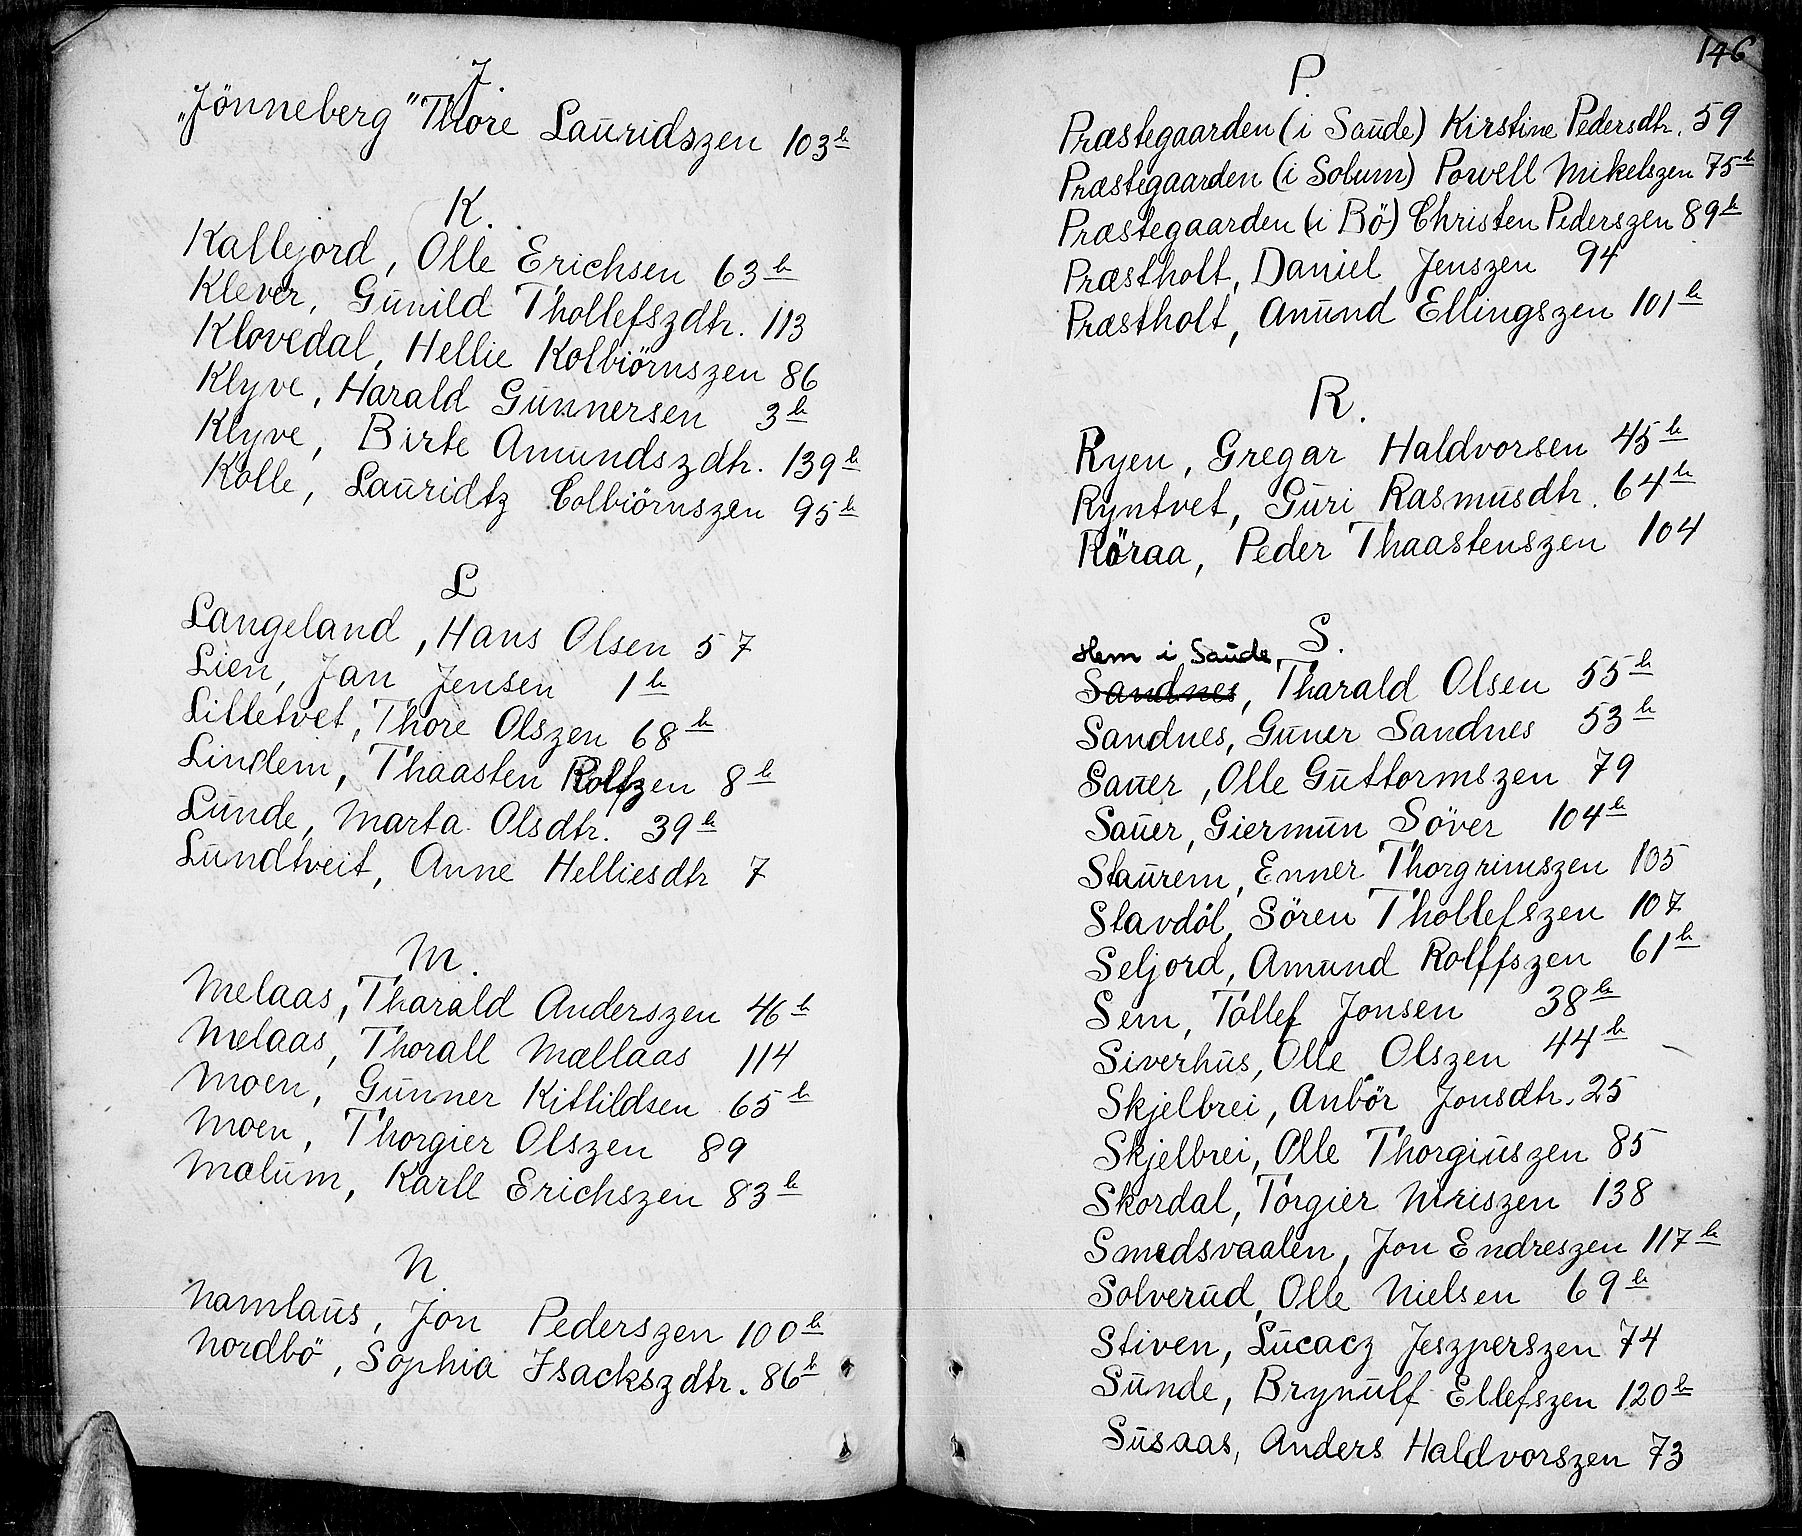 J.
"Jönneberg" Thore Lauridszen 103b
K.
Kallejord, Olle Erichsen 63b
Klever, Gunild Thollefszdtr. 113
Klovedal, Hellie Kolbiörnszen 86
Klyve, Harald Gunnersen 3b
Klyve, Birte Amundszdtr. 139b
Kolle, Lauridtz Colbiörnszen 95b
L
Langeland, Hans Olsen 57
Lien, Jan Jensen 1b
Lilletvet, Thore Olszen 68b
Lindem, Thaasten Rolfzen 8b
Lunde, Marta Olsdtr. 39b
Lundtveit, Anne Helliesdtr 7
M.
Melaas, Tharald Anderszen 46b
Melaas, Thorall Mællaas 114
Moen, Gunner Kittildsen 65b
Moen, Thorgier Olszen 89
Mælum, Karll Erichszen 83b
N
Namlaus, Jon Pederszen 100b
Nordbö, Sophia Isackszdtr. 86b
146
P.
Præstegaarden (i Saude) Kirstine Pedersdtr. 59
Præstegaarden (i Solum) Powell Mikelszen 75b
Præstegaarden (i Bö) Christen Pederszen 89b
Præstholt, Daniel Jenszen 94
Præstholt, Anund Ellingszen 101b
R.
Ryen, Gregar Haldvorsen 45b
Ryntvet, Guri Rasmusdtr. 64b
Röraa, Peder Thaastenszen 104
S.
Hem i Saude,
Sandnes, Tharald Olsen 55b
Sandnes, Guner Sandnes 53b
Sauer, Olle Guttormszen 79
Sauer, Giermun Söver 104b
Staurem, Enner Thorgrimszen 105
Stavdöl, Sören Thollefszen 107
Seljord, Amund Rolffszen 61b
Sem, Tollef Jonsen 38b
Siverhus, Olle Olszen 44b
Skjelbrei, Anbör Jonsdtr. 25
Skjelbrei, Olle Thorgiuszen 85
Skordal, Torgier Niriszen 138
Smedsvaalen, Jon Endreszen 117b
Solverud, Olle Nielsen 69b
Stiven, Lucacz Jeszperszen 74
Sunde, Brynulf Ellefszen 120b
Susaas, Anders Haldvorszen 73